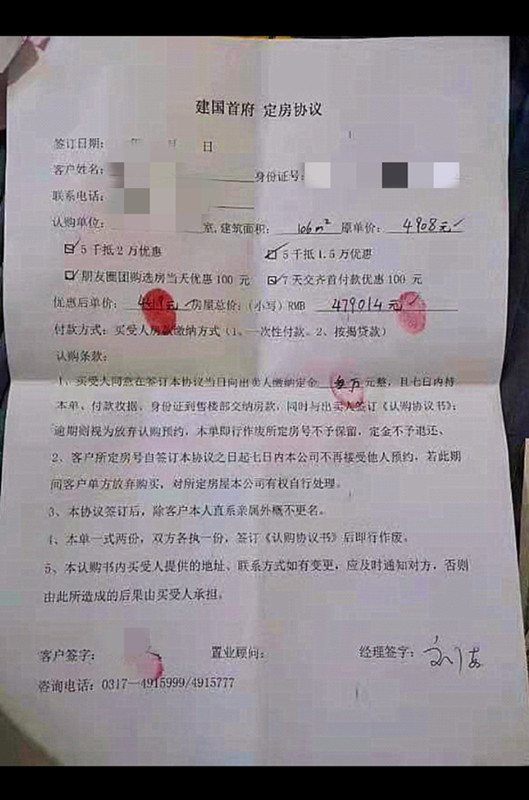 建国首府 定房协议
签订日期： 年 月 日
客户姓名： 身份证号：
联系电话：
认购单位： 室,建筑面积： 106m² 原单价： 4908元
☑ 5千抵2万优惠 ☑ 5千抵1.5万优惠
☑ 朋友圈团购选房当天优惠100元 ☑ 7天交齐首付款优惠100元
优惠后单价： 4519元 房屋总价：(小写) RMB 479014元
付款方式：买受人房款缴纳方式（1、一次性付款。2、按揭贷款）
认购条款：
1、买受人同意在签订本协议当日向出卖人缴纳定金 元整，且七日内持
本单、付款收据、身份证到售楼部交纳房款，同时与出卖人签订《认购协议书》；
逾期则视为放弃认购预约，本单即行作废所定房号不予保留，定金不予退还。
2、客户所定房号自签订本协议之日起七日内本公司不再接受他人预约，若此期
间客户单方放弃购买，对所定房屋本公司有权自行处理。
3、本协议签订后，除客户本人直系亲属外概不更名。
4、本单一式两份，双方各执一份，签订《认购协议书》后即行作废。
5、本认购书内买受人提供的地址、联系方式如有变更，应及时通知对方，否则
由此所造成的后果由买受人承担。
客户签字： 置业顾问： 经理签字：
咨询电话：0317—4915999/4915777